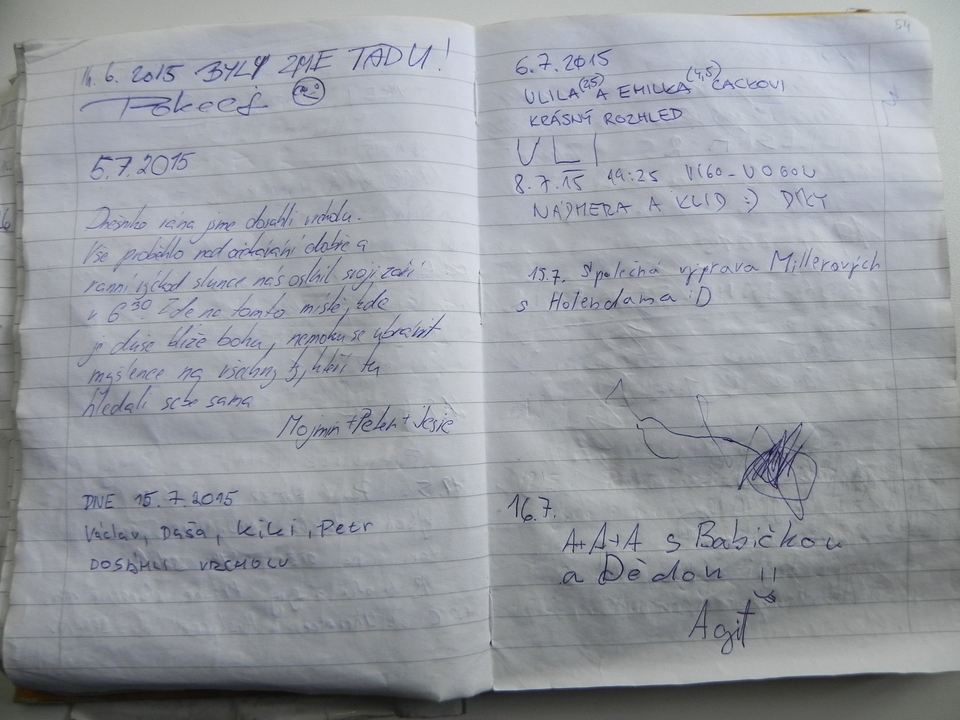 6. 2015 BYLY ZME TADU!
5.7.2015
Dnešniho rana jsme dosahli vrcholu.
Vše proběhlo nad očekávání dobře a
ranní východ slunce nás oslnil svojí září
v 6³⁰ Zde na tomto místě, kde
je duše blíže bohu, nemohu se ubránit
myšlence na všechny ty, kteří tu
hledali sebe sama
Mojmír+Peter+
DNE 15.7.2015
Václav, Daša, Kiki, Petr
DOSÁHLI VRCHOLU
54
6.7.2015
A EMILKA (4,5)
KRÁSNÝ ROZHLED
ULI
8.7.15 19:25
NÁDHERA A KLID :) DÍKY
15.7. Společná výprava Millerových
s Holendama :D
16.7.
A+A+A s Babičkou
a Dědou !!